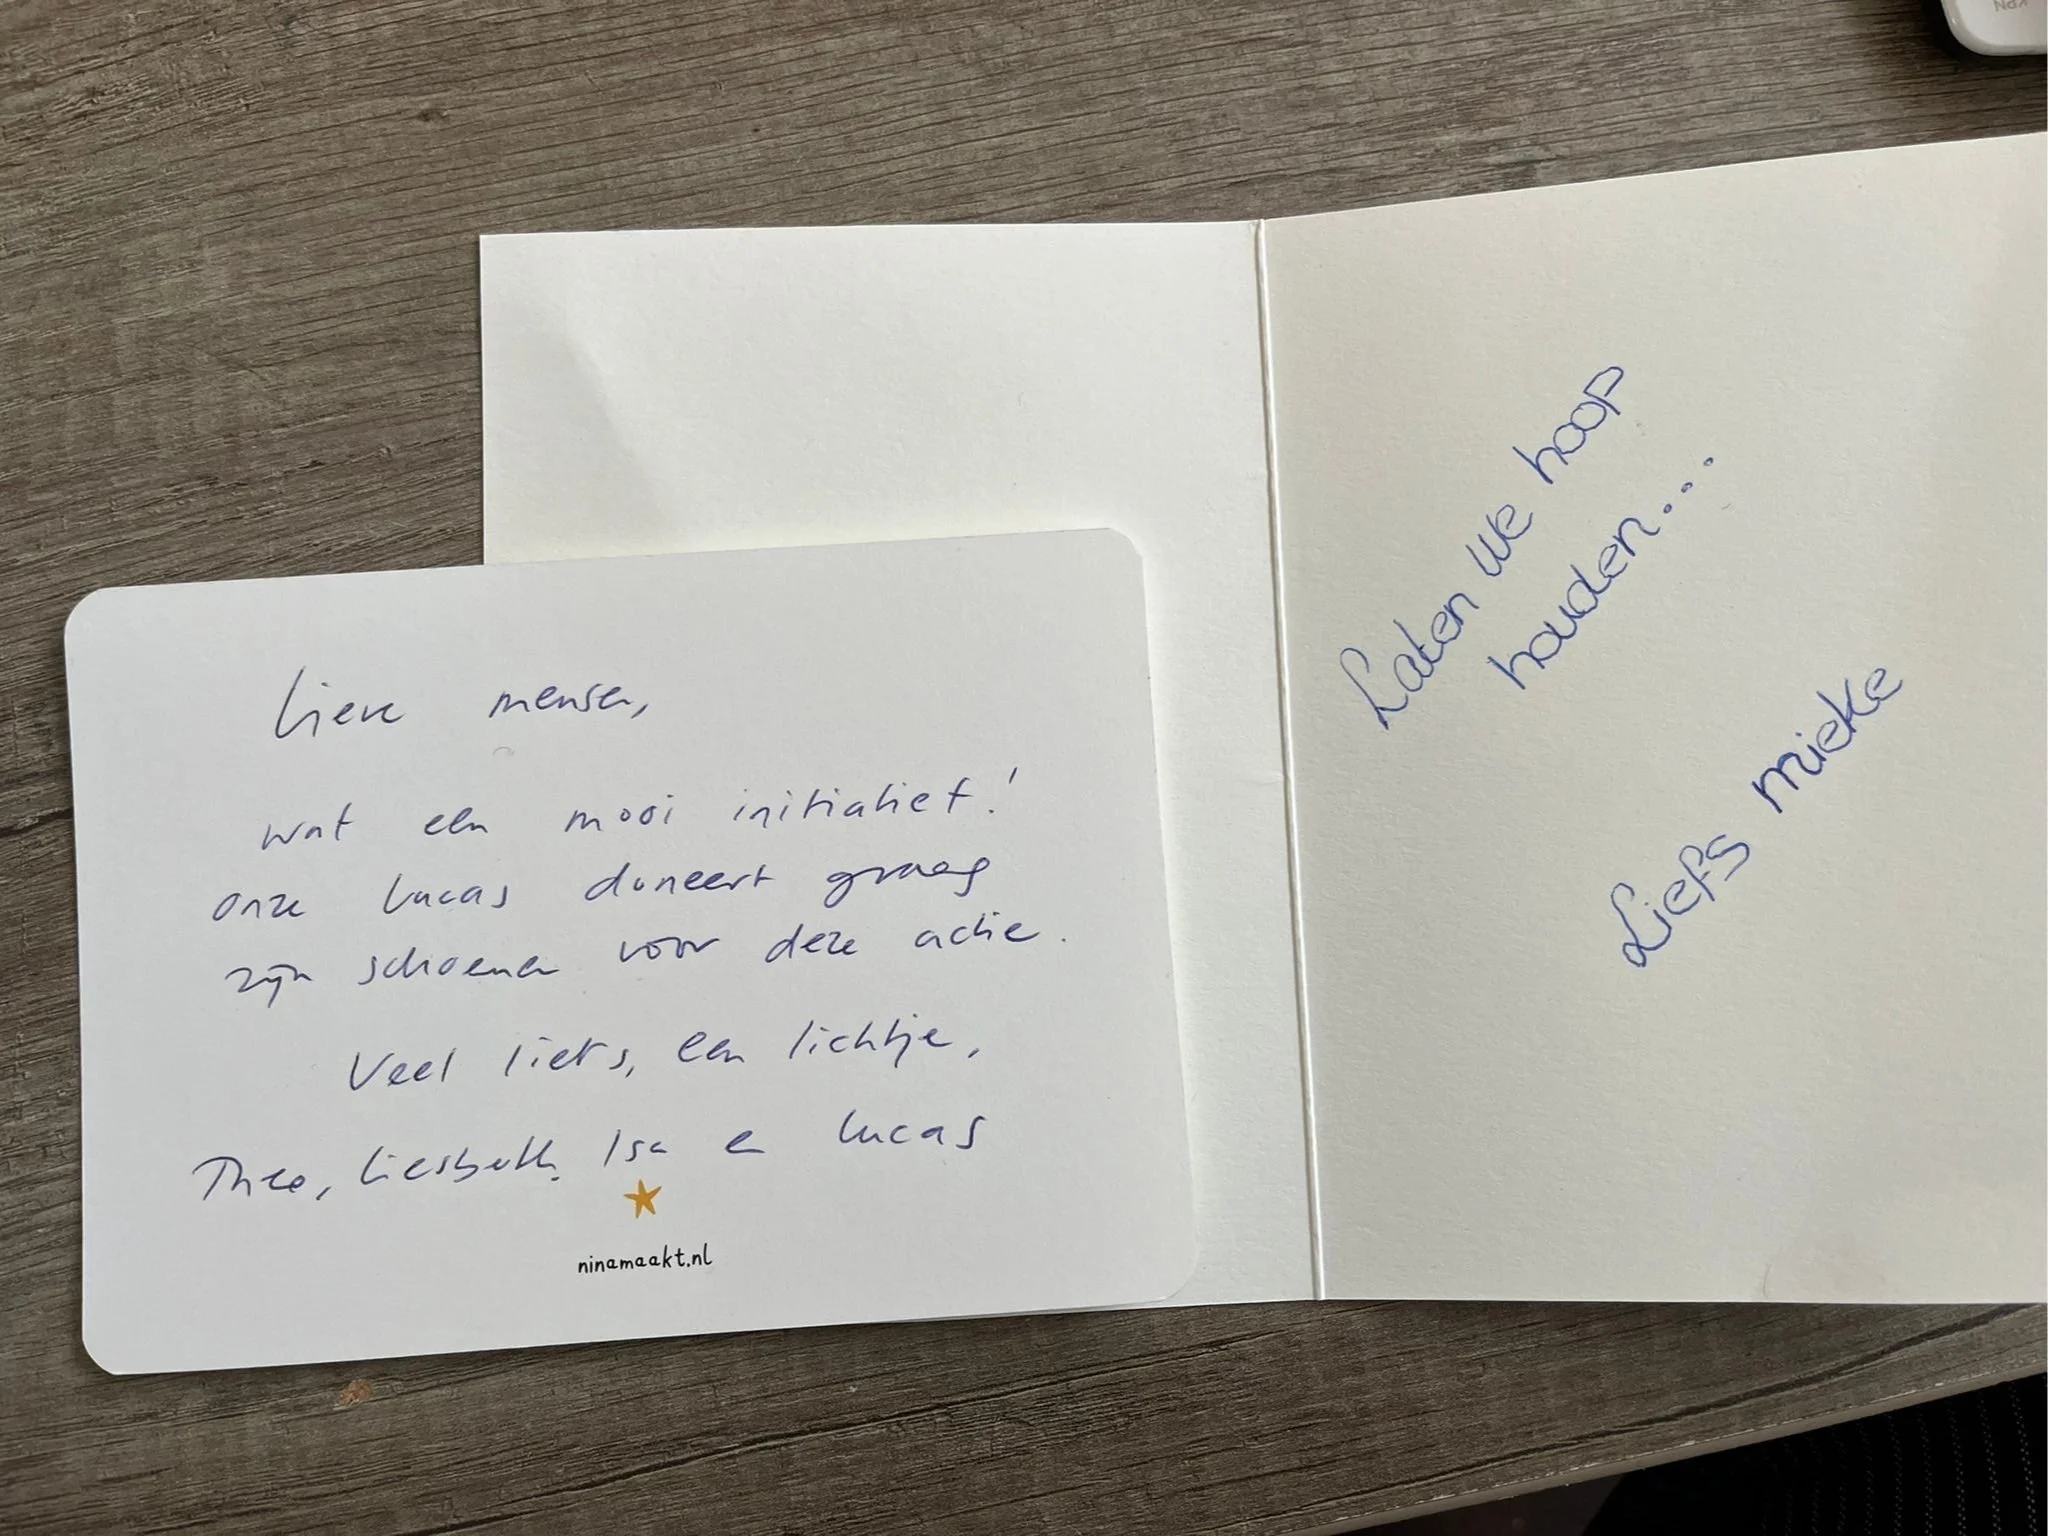 Lieve mensen,
wat een mooi initiatief!
onze Lucas doneert graag
zijn schoenen voor deze actie.
Veel liefs, een lichtje,
Theo, Liesbeth, Isa en Lucas
ninamaakt.nl
Laten we hoop
houden...
Liefs Mieke
KPN